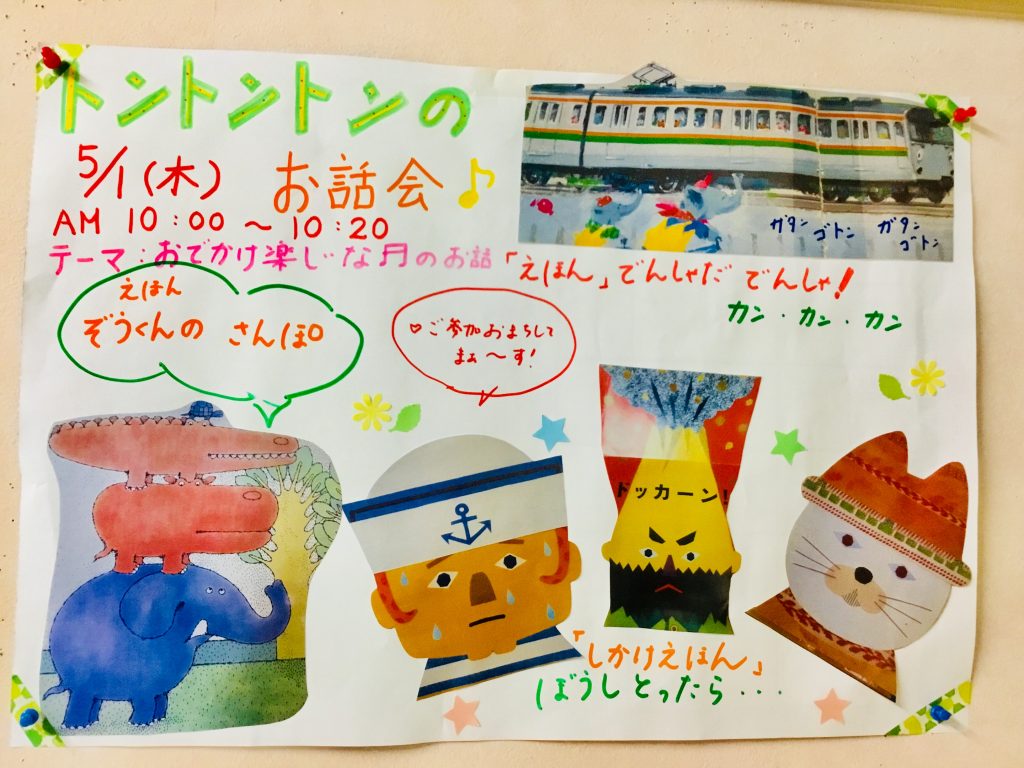 トントントンの
お話会♪
5/1(木)
AM 10:00 〜 10:20
テーマ:おでかけ楽しいな♬のお話
ガタン ゴトン ガタン ゴトン
「えほん」でんしゃだ でんしゃ!
カン・カン・カン
えほん
ぞうくんの さんぽ
♡ご参加おまちして
まぁ〜す!
ドッカーン!
「しかけえほん」
ぼうしとったら・・・